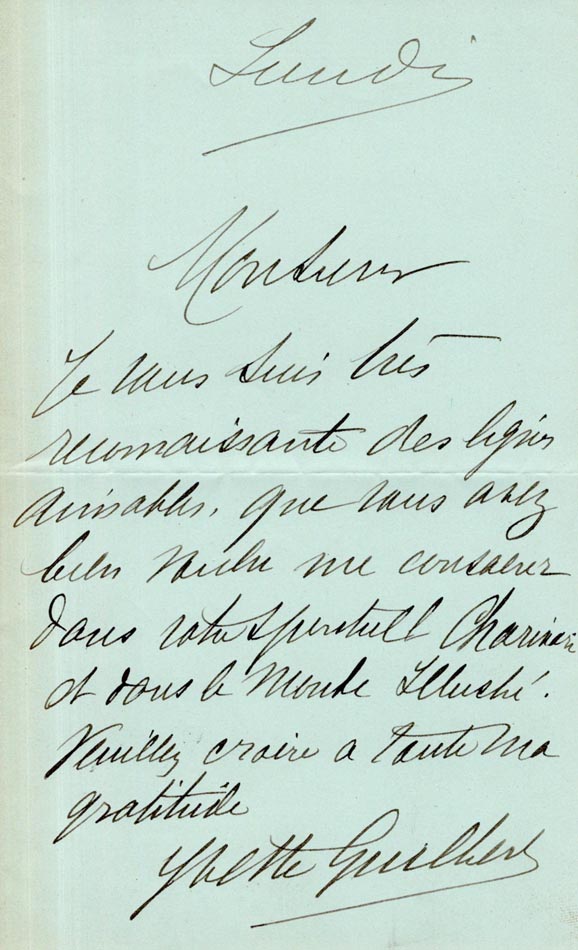 Lundi
Monsieur
Je vous suis très
reconnaissante des lignes
aimables, que vous avez
bien voulu me consacrer
dans votre spirituell Charivari
et dans le Monde Illustré.
Veuillez croire a toute ma
gratitude
Yvette Guilbert